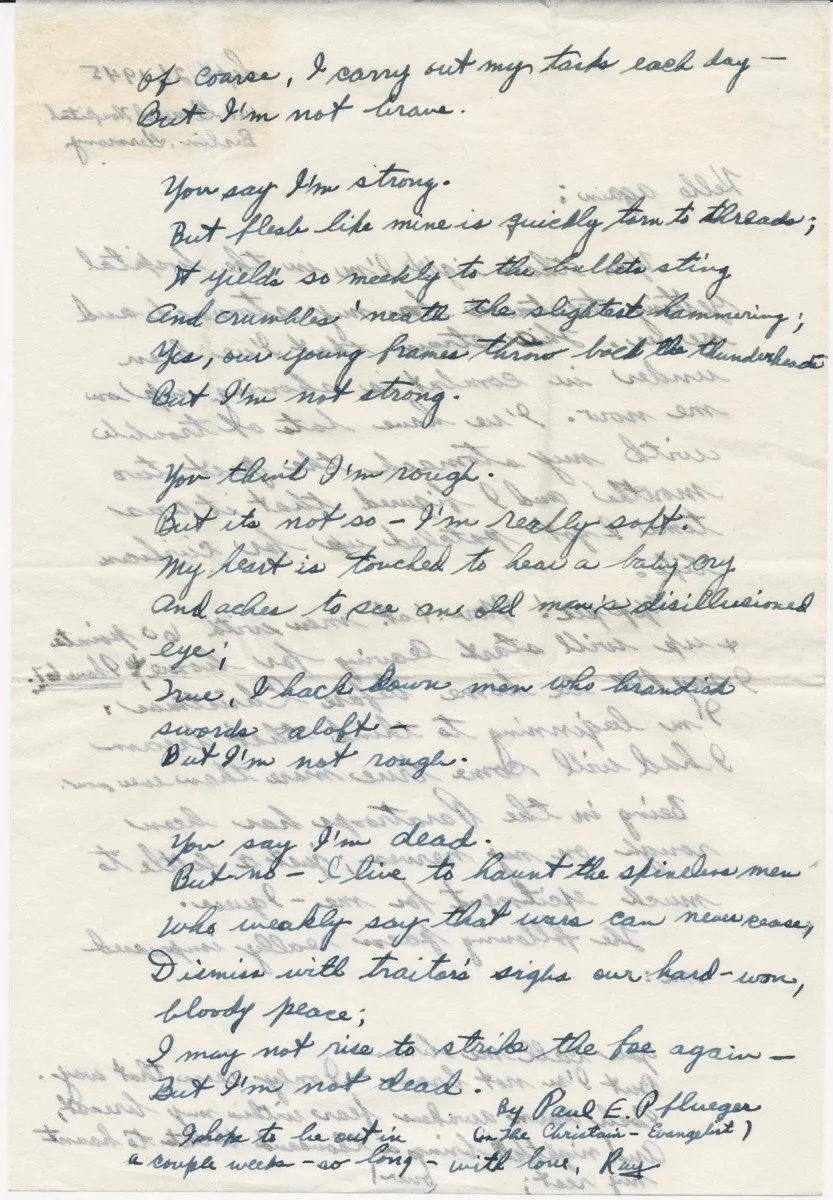 of coarse, I carry out my tasks each day —
But I'm not brave.
You say I'm strong.
But flesh like mine is quickly torn to threads;
It yields so meekly to the bullets sting
And crumbles 'neath the slightest hammering;
Yes, our young frames throw back the thunderheads
But I'm not strong.
You think I'm rough.
But its not so — I'm really soft.
My heart is touched to hear a baby cry
And aches to see an old man's disillusioned
eye;
True, I hack down men who brandish
swords aloft —
But I'm not rough.
You say I'm dead.
But no — I live to haunt the spineless men
Who weakly say that wars can never cease,
Dismiss with traitor's sighs our hard-won,
bloody peace;
I may not rise to strike the foe again —
But I'm not dead.
By Paul E. Pflueger
(in The Christain - Evangelist)
I hope to be out in
a couple weeks — so long — with love, Ray